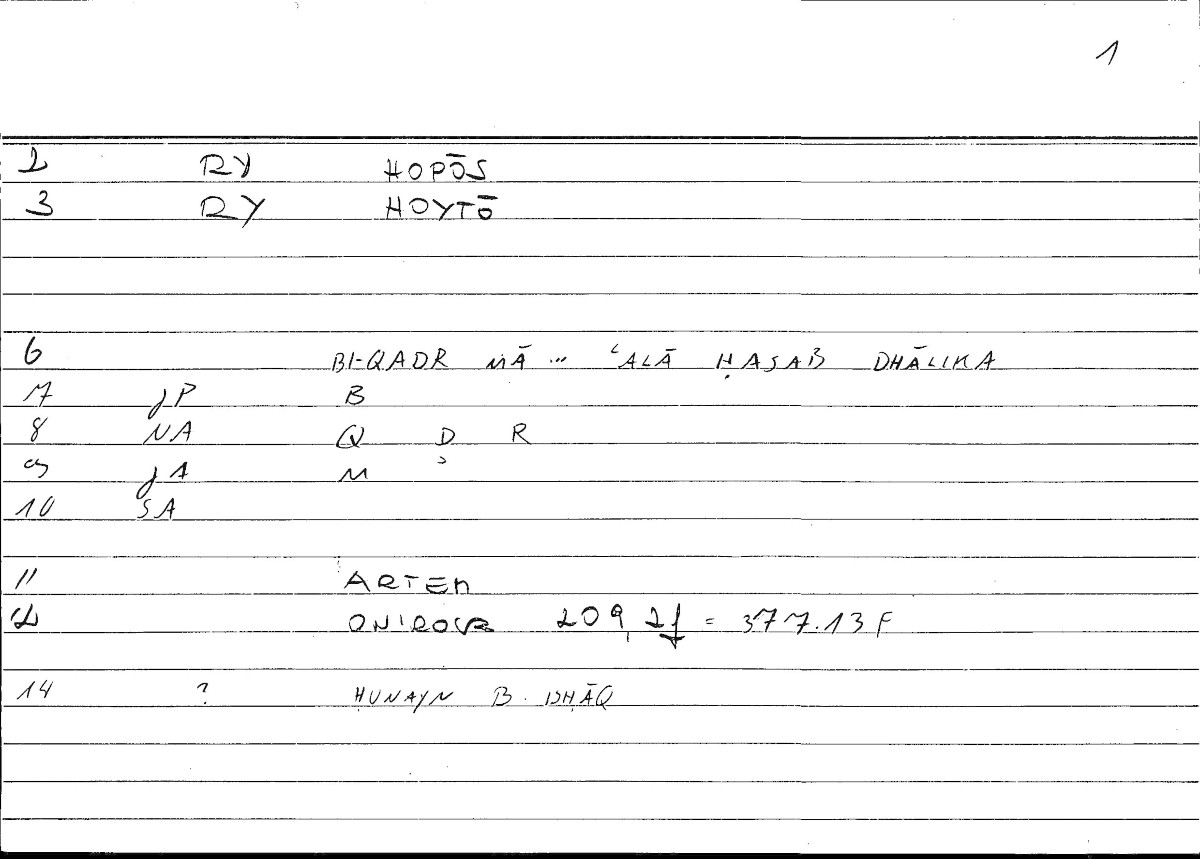 1
2 RY HOPŌS
3 RY HOYTŌ
6 BI-QADR MĀ ... ʿALĀ ḤASAB DHĀLIKA
7 JP B
8 NA Q D R
9 JA M
10 SA
11 ARTEM
12 209, 2f = 377.13 F
14 ? ḤUNAYN B.